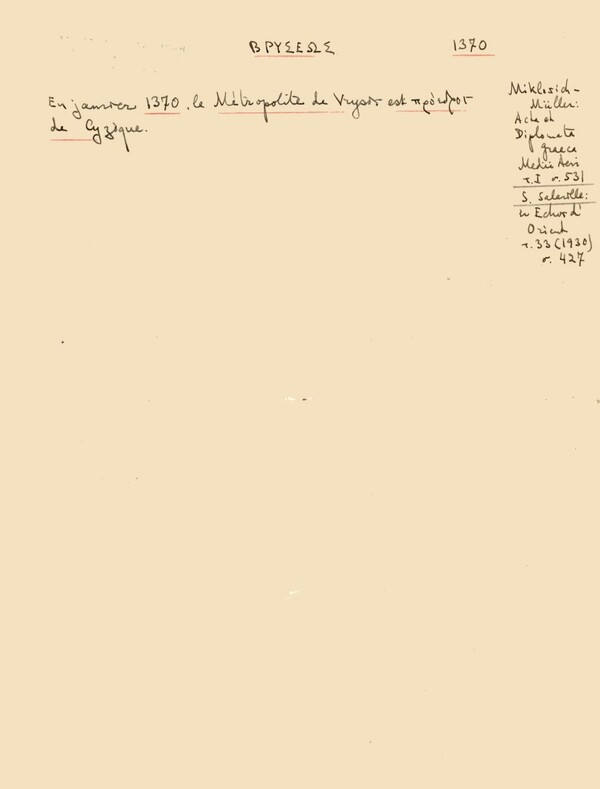 ΒΡΥΣΕΩΣ 1370
En janvier 1370, le Métropolite de Vrysis est πρόεδρος
de Cyzique.
Miklosich-
Müller:
Acta et
Diplomata
graeca
Medii Aevi
τ. I σ. 531
S. Salaville:
in Echos d'
Orient
τ. 33 (1930)
σ. 427